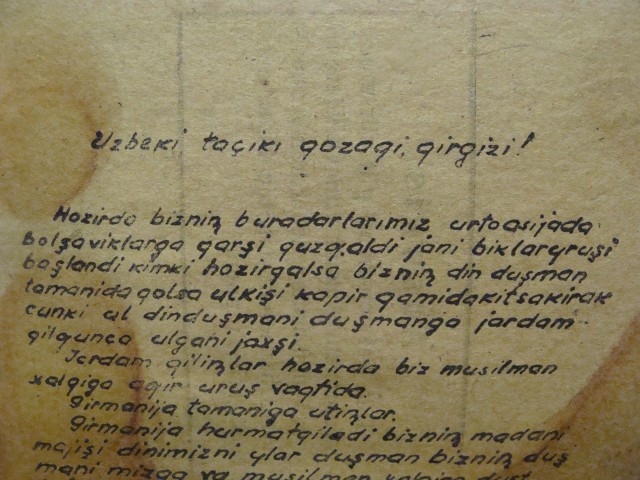 Uzbeki taçiki qozaqi, qirgizi!
Hozirda bizniꞑ buradarlarımız urtoasijada
bolşaviklarga qarşi quzqaldi jani biklarуruşi
başlandi kimki hozirqalsa bizniꞑ din duşman
tamanida qolsa ulkişi kapir qamidakitsakirak
cunki ul dinduşmani duşmanga jardam
qilqunca ulgani jaxşi.
Jerdam qiliꞑlar hozirda biz musilman
xalqiga aqır uruş vaqtida.
girmanija tamaniga utiꞑlar.
girmanija hurmatqiladi bizniꞑ madani
majişi dinimizni ylar duşman bizniꞑ duş
mani mizga va musilman xalqiga dust